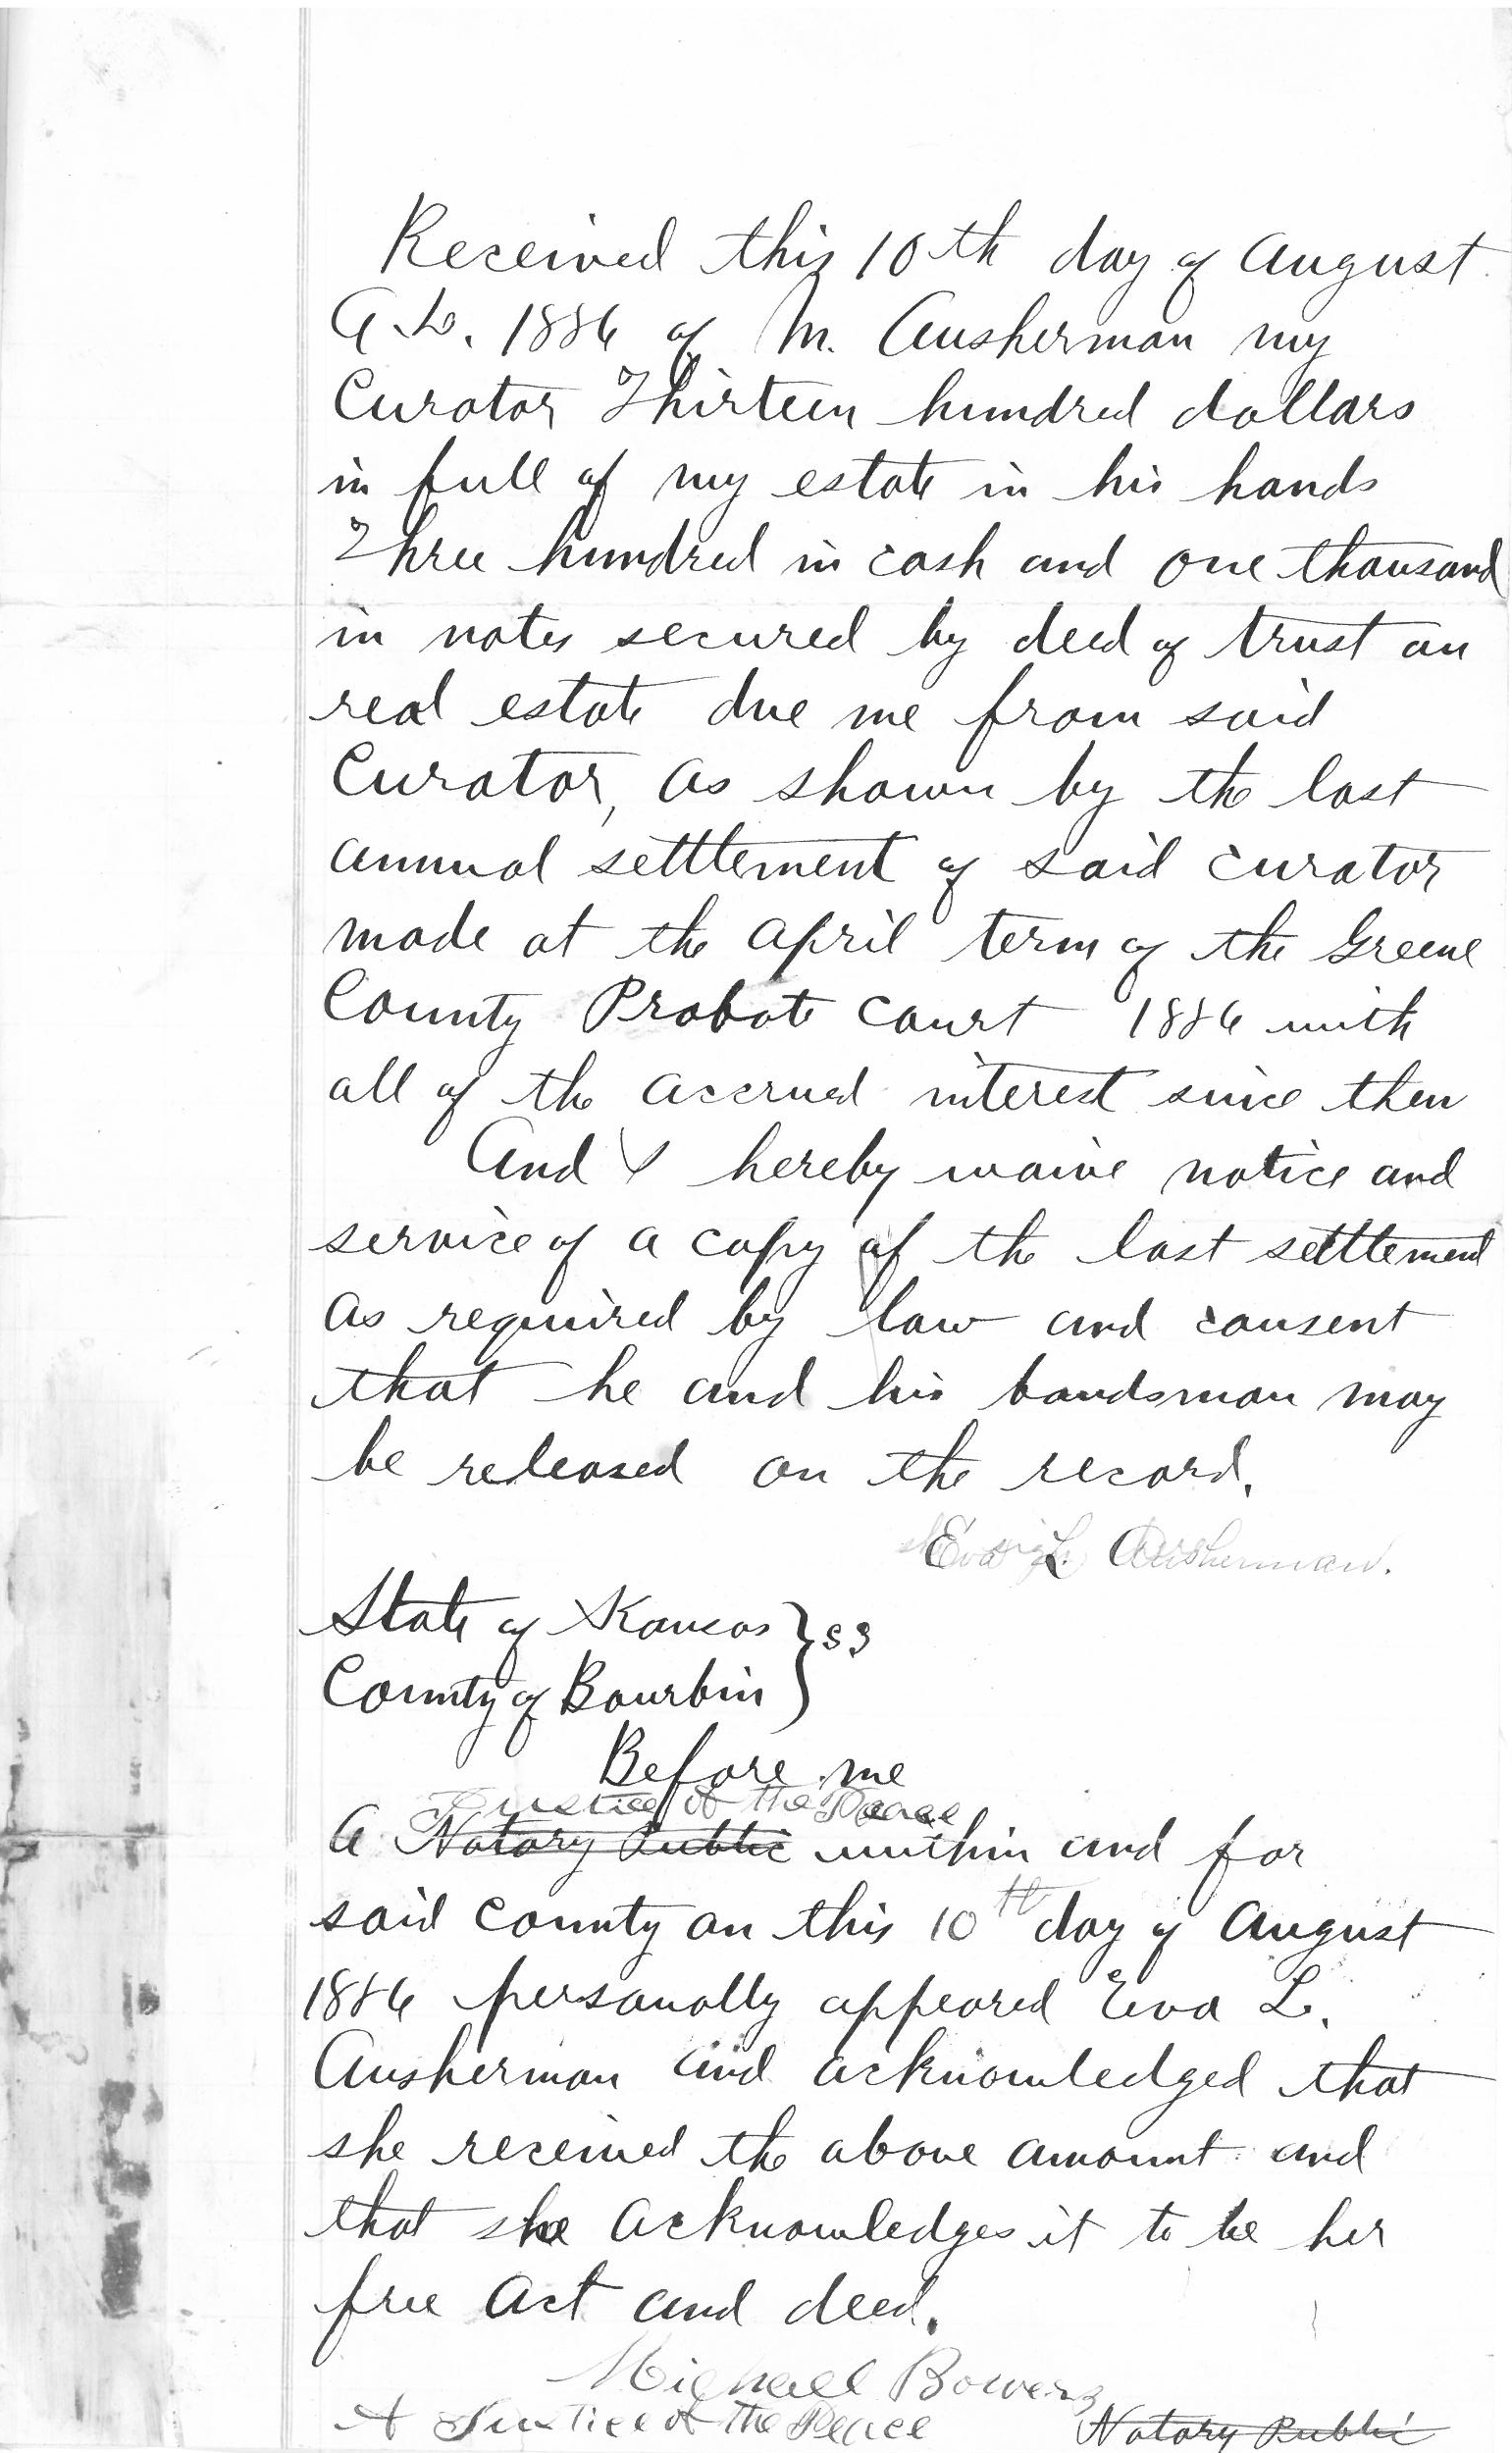 Received this 10th day of August
A.D. 1886 of M. Ausherman my
Curator Thirteen hundred dollars
in full of my estate in his hands
Three hundred in cash and one thousand
in notes secured by deed of trust on
real estate due me from said
Curator, as shown by the last
annual settlement of said curator
made at the April term of the Greene
County Probate court 1886 with
all of the accrued interest since then
And I hereby waive notice and
service of a copy of the last settlement
as required by law and consent
that he and his bondsman may
be released on the record.
Eva L. Ausherman.
State of Kansas } ss
County of Bourbin
Before me
Justice of the Peace
A Notary Public within and for
said County on this 10th day of August
1886 personally appeared Eva L.
Ausherman and acknowledged that
she received the above amount and
that she acknowledges it to be her
free act and deed.
Michael Bowers
A Justice of the Peace Notary Public